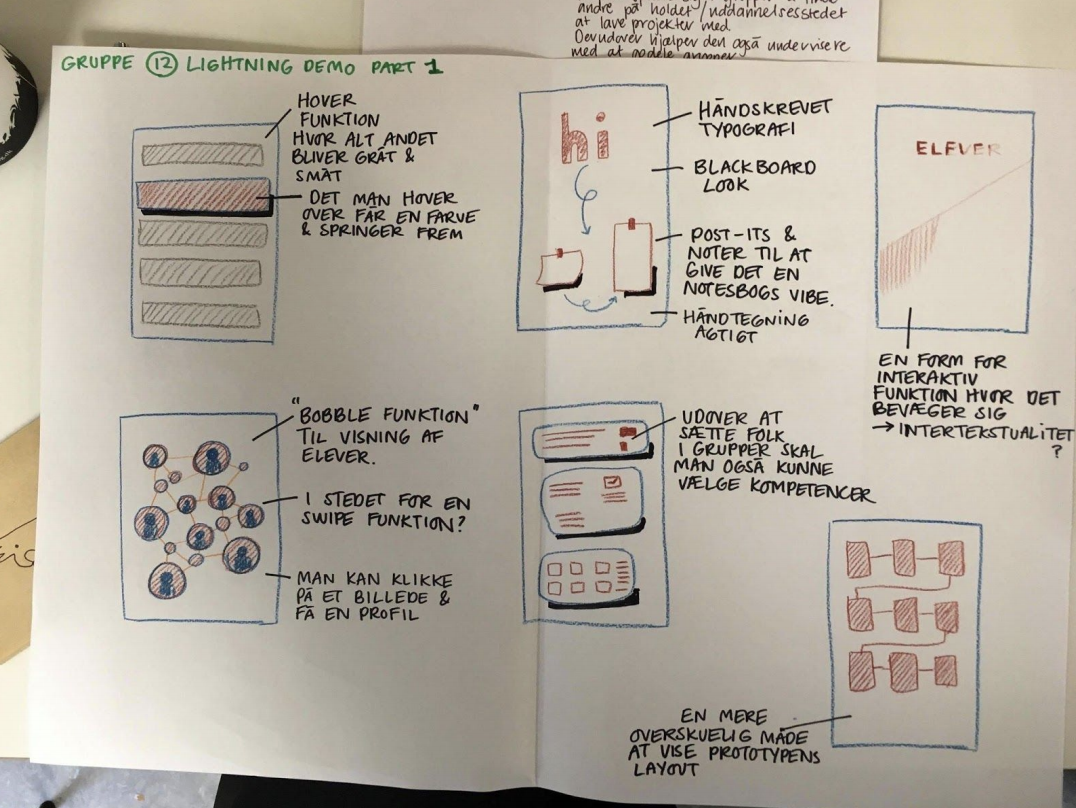 andre på holdet/uddannelsesstedet
at lave projekter med.
Derudover hjælper den også undervisere
med at
GRUPPE 12 LIGHTNING DEMO PART 1
HOVER
FUNKTION
HVOR ALT ANDET
BLIVER GRÅT &
SMÅT
DET MAN HOVER
OVER FÅR EN FARVE
& SPRINGER FREM
hi
HÅNDSKREVET
TYPOGRAFI
BLACKBOARD
LOOK
POST-ITS &
NOTER TIL AT
GIVE DET EN
NOTESBOGS VIBE.
HÅNDTEGNING
AGTIGT
ELEVER
EN FORM FOR
INTERAKTIV
FUNKTION HVOR DET
BEVÆGER SIG
→ INTERTEKSTUALITET
?
"BOBBLE FUNKTION"
TIL VISNING AF
ELEVER.
I STEDET FOR EN
SWIPE FUNKTION?
MAN KAN KLIKKE
PÅ ET BILLEDE &
FÅ EN PROFIL
UDOVER AT
SÆTTE FOLK
I GRUPPER SKAL
MAN OGSÅ KUNNE
VÆLGE KOMPETENCER
EN MERE
OVERSKUELIG MÅDE
AT VISE PROTOTYPENS
LAYOUT